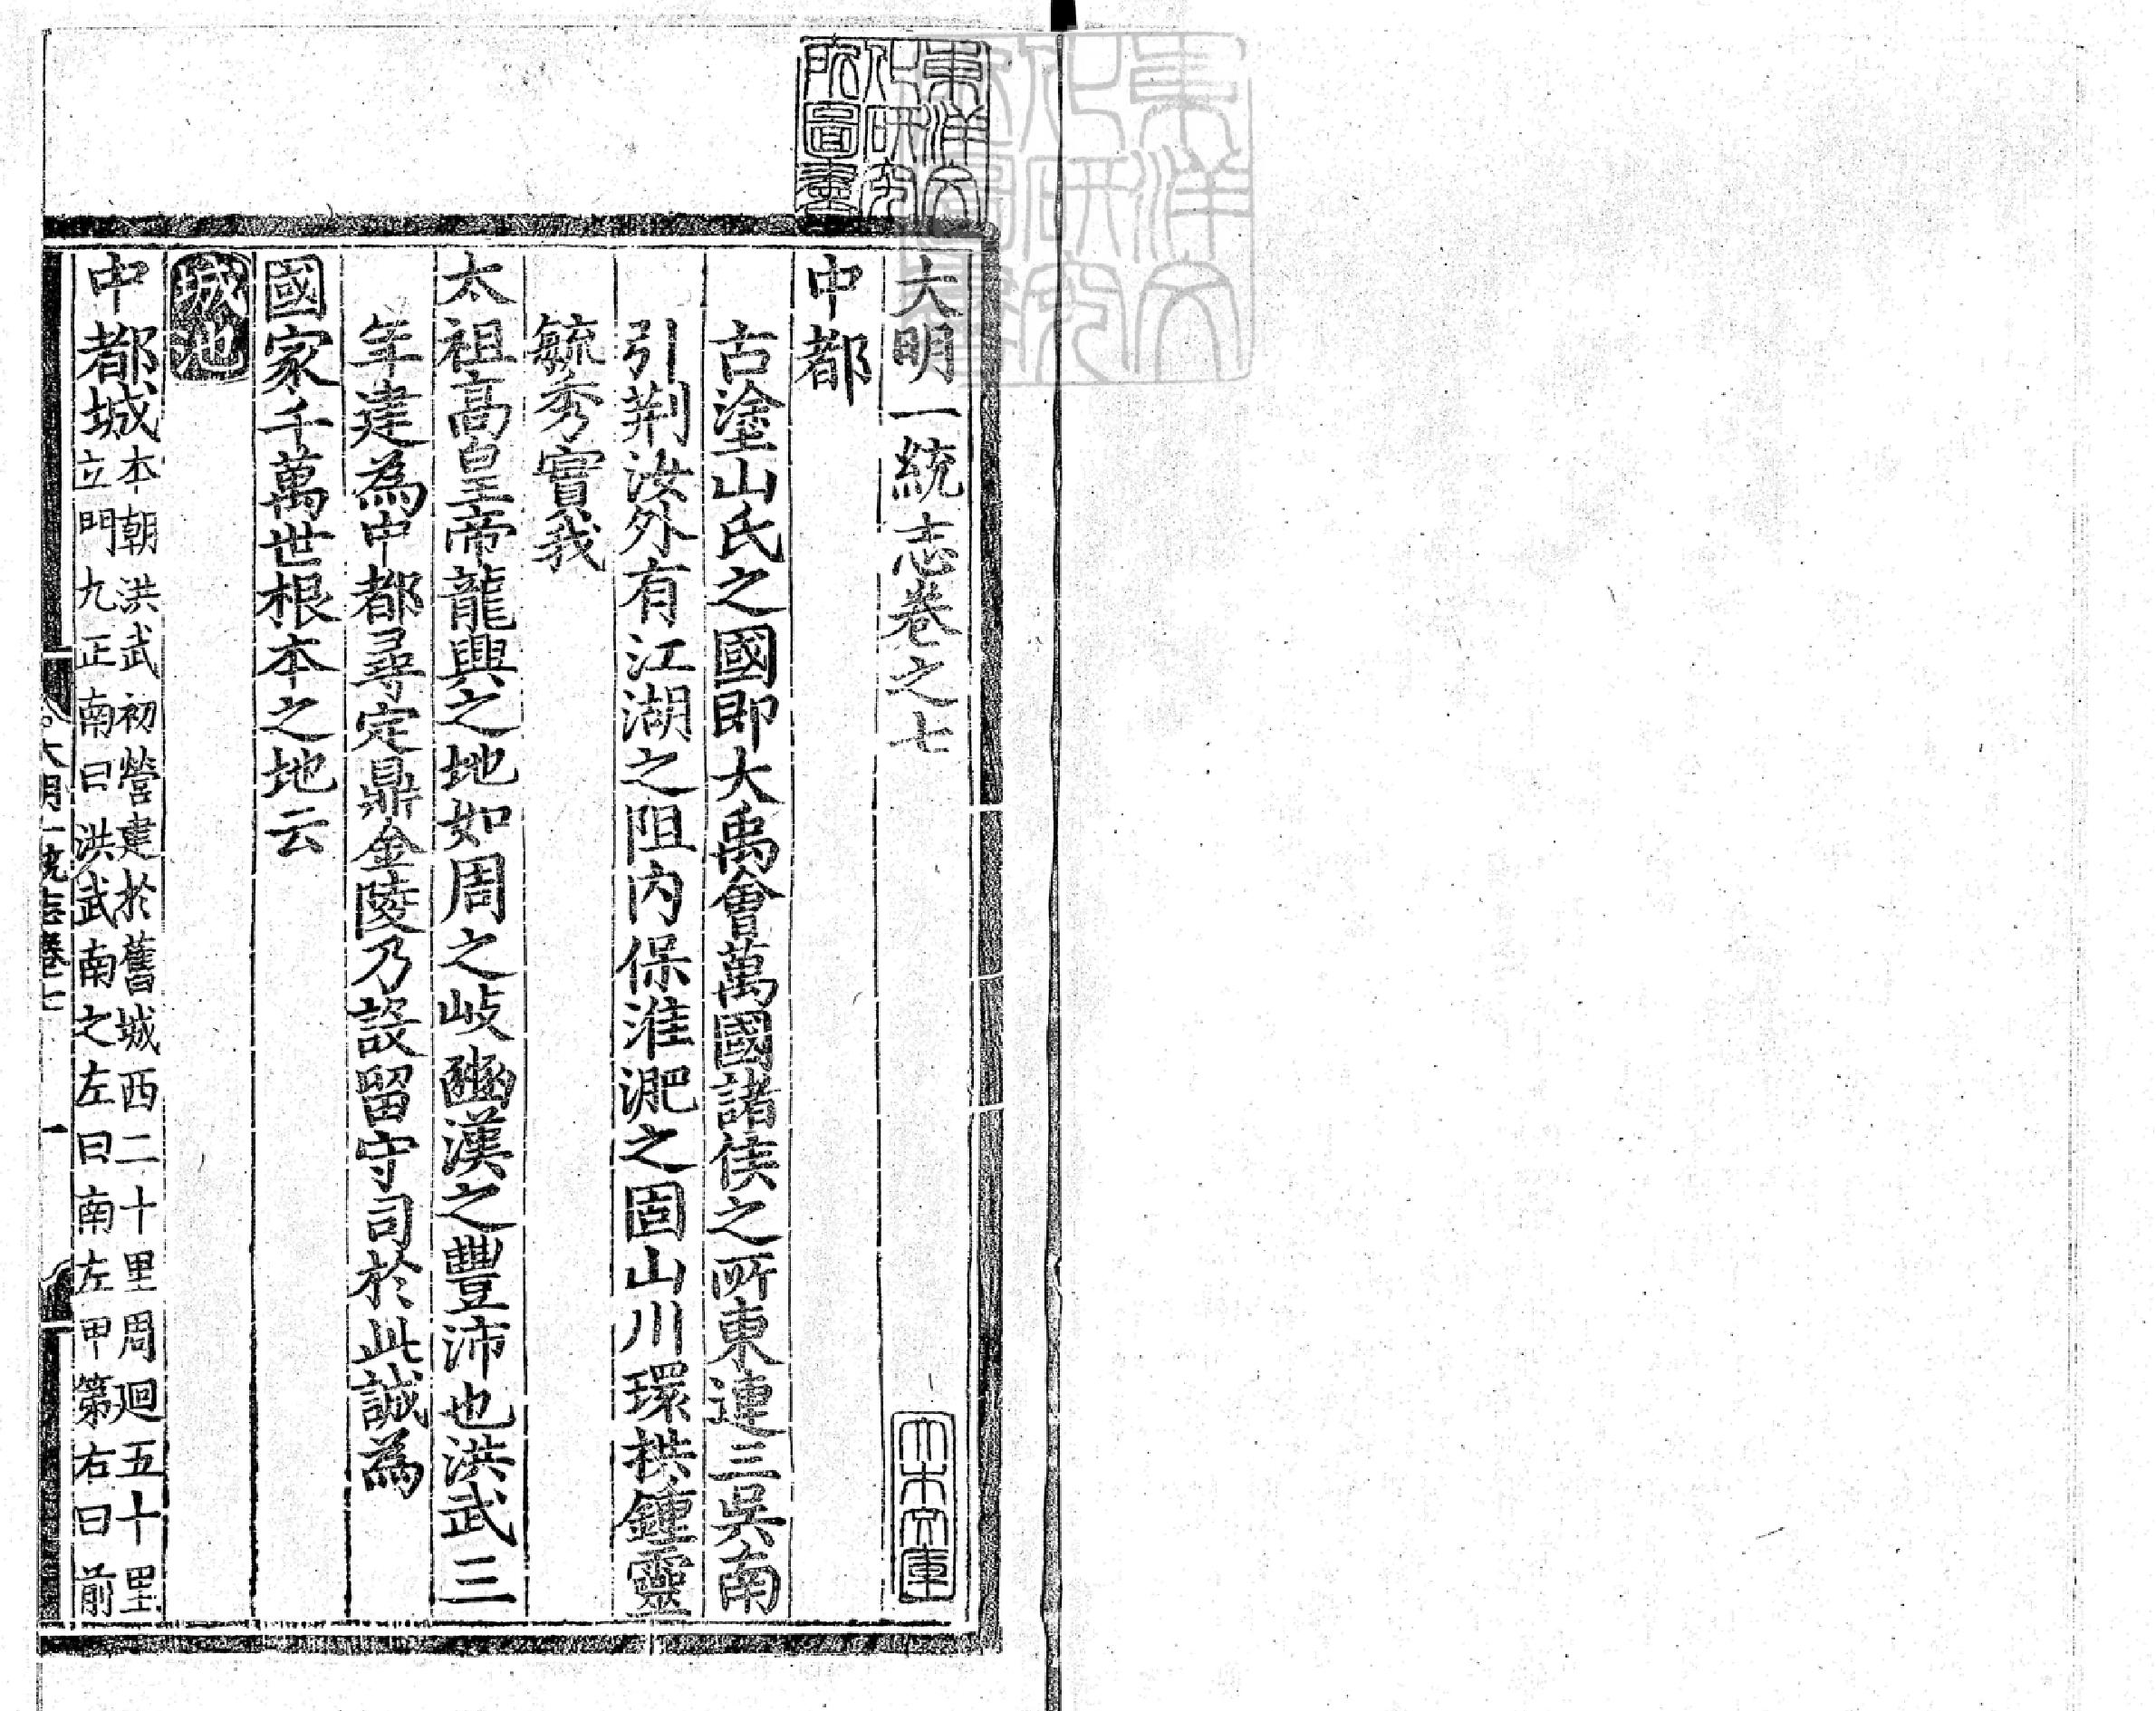 大明一統志卷之七
中都
古塗山氏之國即大禹會萬國諸侯之所東連三吳南
引荆汝外有江湖之阻内保淮淝之固山川環拱鍾靈
毓秀實我
太祖高皇帝龍興之地如周之岐豳漢之豐沛也洪武三
年建為中都尋定鼎金陵乃設留守司於此誠為
國家千萬世根本之地云
城池
中都城本朝洪武初營建於舊城西二十里周迴五十里
立門九正南曰洪武南之左曰南左甲第右曰前
大明一統志卷七
一
東洋文
化研究
所圖書
大木文庫